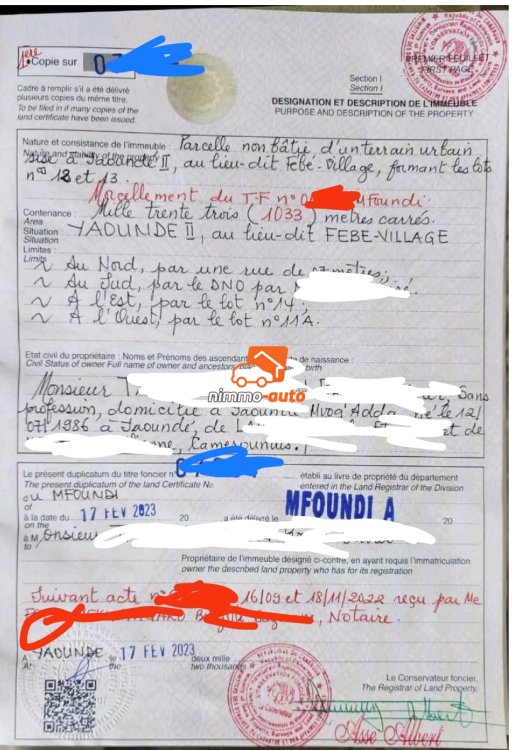 1ère
•Copie sur
Cadre à remplir s'il a été délivré
plusieurs copies du même titre.
To be filed in if many copies of the
land certificate have been issued.
PREMIER FEUILLET
FIRST PAGE
Section I
Section I
DESIGNATION ET DESCRIPTION DE L'IMMEUBLE
PURPOSE AND DESCRIPTION OF THE PROPERTY
Nature et consistance de l'immeuble : Parcelle non bâtie d'un terrain urbain
sise à Yaoundé II, au lieu-dit Febé-Village, formant les lots
nos 12 et 13.
Morcellement du T.F n° Mfoundi.
Contenance : Mille trente trois (1033) mètres carrés.
Area
Situation : YAOUNDE II, au lieu-dit FEBE-VILLAGE
Situation
Limites :
Limits
~ Au Nord, par une rue de mètres ;
~ Au Sud, par le DNO par
~ A l'Est, par le lot n° 14 ;
~ A l'Ouest, par le lot n° 11A.
Etat civil du propriétaire : Noms et Prénoms des ascendants de naissance :
Civil Status of owner Full name of owner and ancestors birth
nimmo-auto
Monsieur Sans
profession, domicilié à Yaoundé Mvog Adda né le 12/
07/1986 à Yaoundé, de et de
Camerounais.
Le présent duplicatum du titre foncier n° établi au livre de propriété du département
The present duplicatum of the land Certificate No entered in the Land Registrar of the Division
du MFOUNDI
of
MFOUNDI A
à la date du 17 FEV 2023 20 a été délivré le 20
on the
à Monsieur
to
Propriétaire de l'immeuble désigné ci-contre, en ayant requis l'immatriculation
owner the described land property who has for its registration
Suivant acte n° 16/09 et 18/11/2022 reçu par Me
Notaire.
A YAOUNDE le 17 FEV 2023 deux mille
At two thousands
Le Conservateur foncier,
The Registrar of Land Property,
Asse Albert